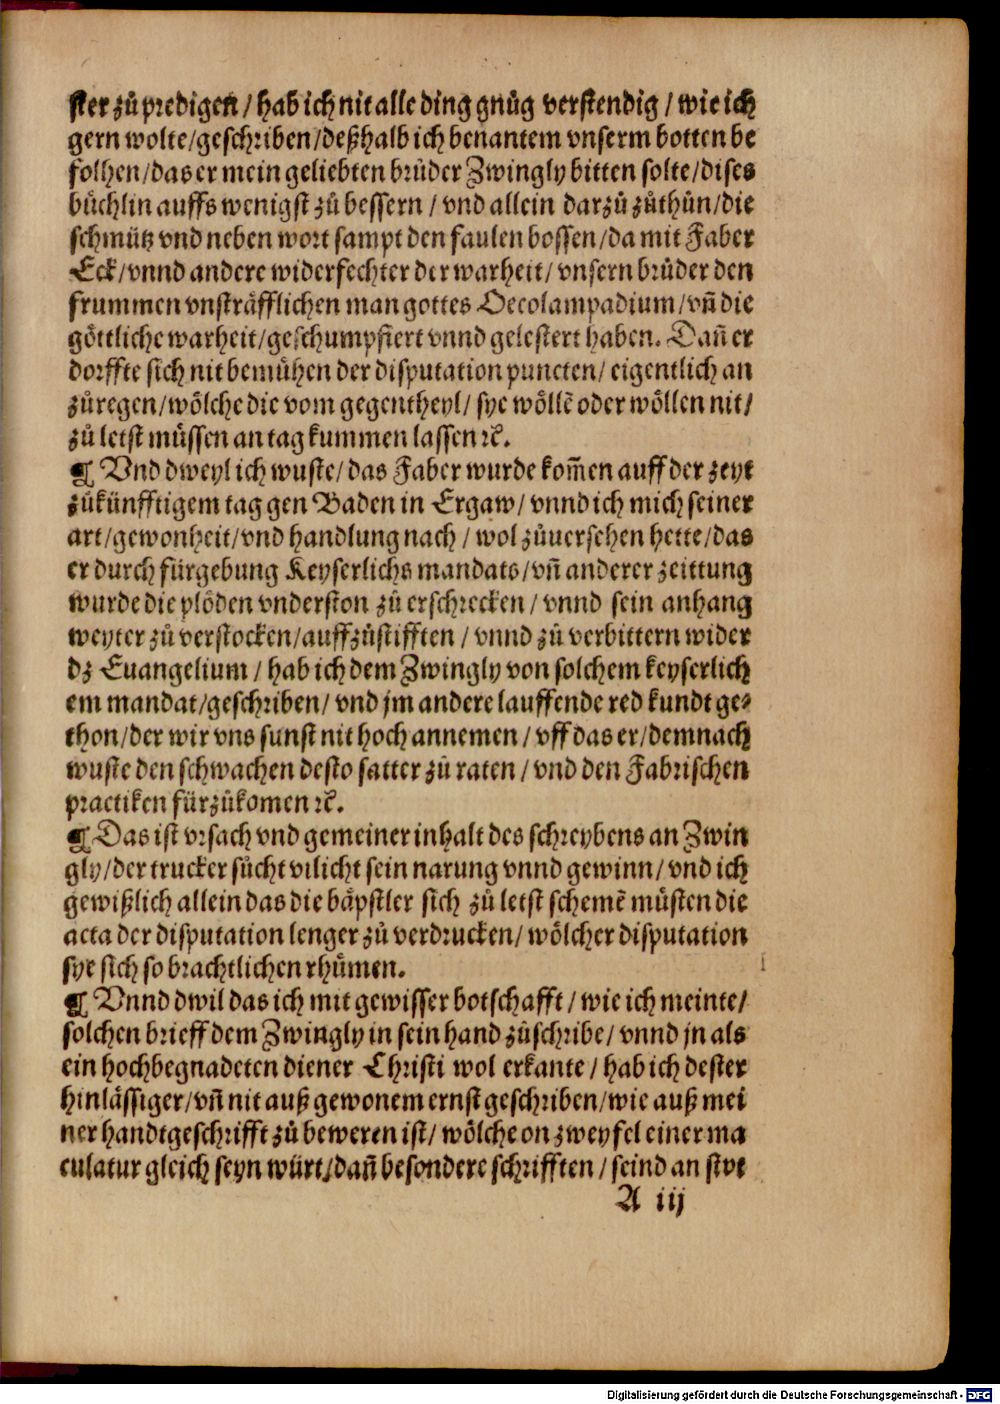 ster zů predigen / hab ich nit alle ding gnůg verstendig / wie ich
gern wolte / geschriben / deßhalb ich benantem vnserm botten be
folhen / das er mein geliebten brůder Zwingly bitten solte / dises
bůchlin auffs wenigst zů bessern / vnd allein darzů zůthůn / die
schmütz vnd neben wort sampt den faulen bossen / da mit Faber
Eck / vnnd andere widerfechter der warheit / vnsern brůder den
frummen vnsträfflichen man gottes Oecolampadium / vn̄ die
göttliche warheit / geschumpfiert vnnd gelestert haben. Dañ er
dorffte sich nit bemůhen der disputation puncten / eigentlich an
zůregen / wölche die vom gegentheyl / sye wöllē oder wöllen nit /
zů letst müssen an tag kummen lassen ꝛc̄.
¶ Vnd dweyl ich wuste / das Faber wurde kom̄en auff der zeyt
zůkünfftigem tag gen Baden in Ergaw / vnnd ich mich seiner
art / gewonheit / vnd handlung nach / wol zůuersehen hette / das
er durch fürgebung Keyserlichs mandats / vn̄ anderer zeittung
wurde die plöden vnderston zů erschrecken / vnnd sein anhang
weyter zů verstocken / auffzůstifften / vnnd zů verbittern wider
dz Euangelium / hab ich dem Zwingly von solchem keyserlich
em mandat / geschriben / vnd jm andere lauffende red kundt ge⸗
thon / der wir vns sunst nit hoch annemen / vff das er / demnach
wuste den schwachen desto satter zů raten / vnd den Fabrischen
practiken fürzůkomen ꝛc̄.
¶ Das ist vrsach vnd gemeiner inhalt des schreybens an Zwin
gly / der trucker sůcht vilicht sein narung vnnd gewinn / vnd ich
gewißlich allein das die bäpstler sich zů letst schemē müsten die
acta der disputation lenger zů verdrucken / wölcher disputation
sye sich so brachtlichen rhůmen.
¶ Vnnd dwil das ich mit gewisser botschafft / wie ich meinte /
solchen brieff dem Zwingly in sein hand zůschribe / vnnd jn als
ein hochbegnadeten diener Christi wol erkante / hab ich dester
hinlässiger / vn̄ nit auß gewonem ernst geschriben / wie auß mei
ner handtgeschrifft zů beweren ist / wölche on zweyfel einer ma
culatur gleich seyn würt / dañ besondere schrifften / seind an stet
A iij
Digitalisierung gefördert durch die Deutsche Forschungsgemeinschaft - DFG